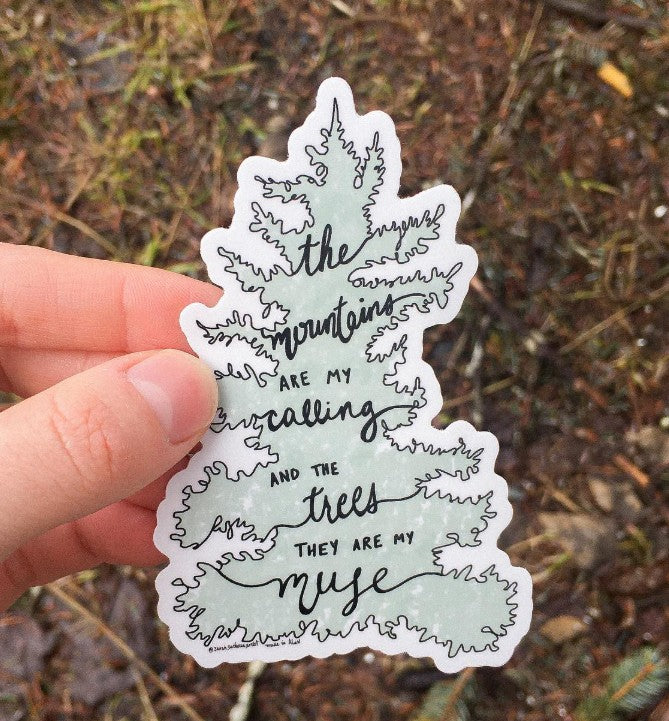 the
mountains
ARE MY
calling
AND THE
trees
THEY ARE MY
muse
made in AK